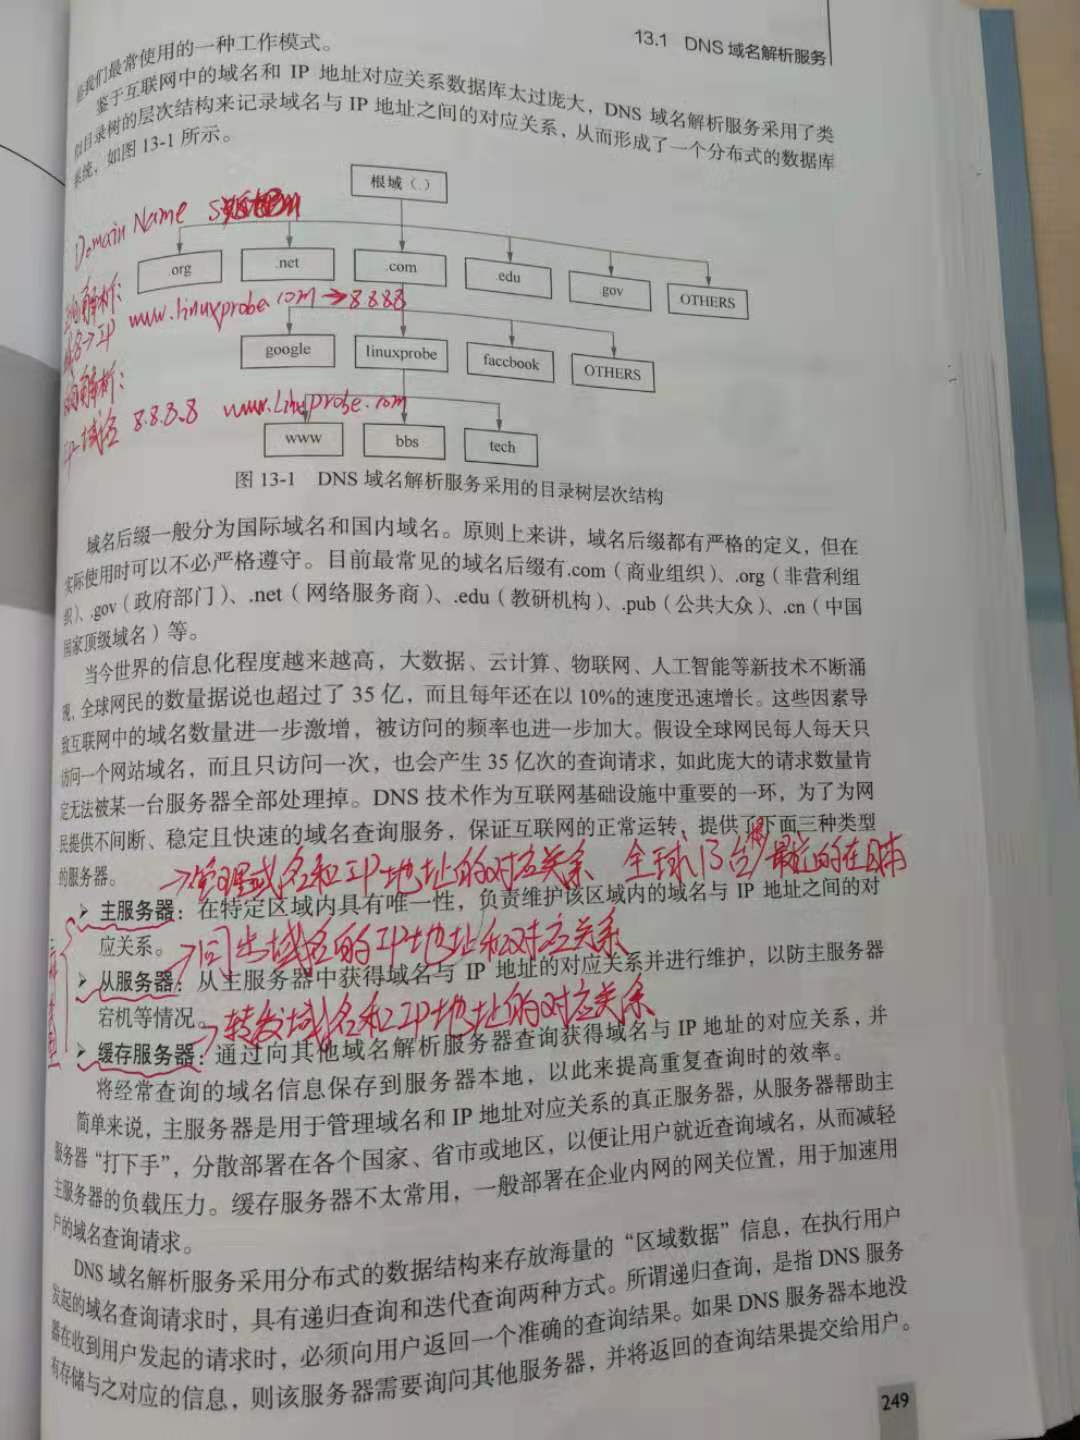 13.1 DNS 域名解析服务
是我们最常使用的一种工作模式。
鉴于互联网中的域名和 IP 地址对应关系数据库太过庞大，DNS 域名解析服务采用了类
似目录树的层次结构来记录域名与 IP 地址之间的对应关系，从而形成了一个分布式的数据库
系统，如图 13-1 所示。
根域（.）
Domain Name
.org
.net
.com
.edu
.gov
OTHERS
解析：
www.linuxprobe.com → 8.8.8.8
域名→IP
google
linuxprobe
faccbook
OTHERS
解析：
IP-域名 8.8.8.8 www.Linuxprobe.com
www
bbs
tech
图 13-1 DNS 域名解析服务采用的目录树层次结构
域名后缀一般分为国际域名和国内域名。原则上来讲，域名后缀都有严格的定义，但在
实际使用时可以不必严格遵守。目前最常见的域名后缀有.com（商业组织）、.org（非营利组
织）、.gov（政府部门）、.net（网络服务商）、.edu（教研机构）、.pub（公共大众）、.cn（中国
国家顶级域名）等。
当今世界的信息化程度越来越高，大数据、云计算、物联网、人工智能等新技术不断涌
现，全球网民的数量据说也超过了 35 亿，而且每年还在以 10%的速度迅速增长。这些因素导
致互联网中的域名数量进一步激增，被访问的频率也进一步加大。假设全球网民每人每天只
访问一个网站域名，而且只访问一次，也会产生 35 亿次的查询请求，如此庞大的请求数量肯
定无法被某一台服务器全部处理掉。DNS 技术作为互联网基础设施中重要的一环，为了为网
民提供不间断、稳定且快速的域名查询服务，保证互联网的正常运转，提供了下面三种类型
的服务器。
→管理域名和IP地址的对应关系 全球13台 最近的在日本
主服务器：在特定区域内具有唯一性，负责维护该区域内的域名与 IP 地址之间的对
应关系。
→同步域名的IP地址和对应关系
从服务器：从主服务器中获得域名与 IP 地址的对应关系并进行维护，以防主服务器
宕机等情况。
→转发域名和IP地址的对应关系
缓存服务器：通过向其他域名解析服务器查询获得域名与 IP 地址的对应关系，并
将经常查询的域名信息保存到服务器本地，以此来提高重复查询时的效率。
简单来说，主服务器是用于管理域名和 IP 地址对应关系的真正服务器，从服务器帮助主
服务器“打下手”，分散部署在各个国家、省市或地区，以便让用户就近查询域名，从而减轻
主服务器的负载压力。缓存服务器不太常用，一般部署在企业内网的网关位置，用于加速用
户的域名查询请求。
DNS 域名解析服务采用分布式的数据结构来存放海量的“区域数据”信息，在执行用户
发起的域名查询请求时，具有递归查询和迭代查询两种方式。所谓递归查询，是指 DNS 服务
器在收到用户发起的请求时，必须向用户返回一个准确的查询结果。如果 DNS 服务器本地没
有存储与之对应的信息，则该服务器需要询问其他服务器，并将返回的查询结果提交给用户。
249